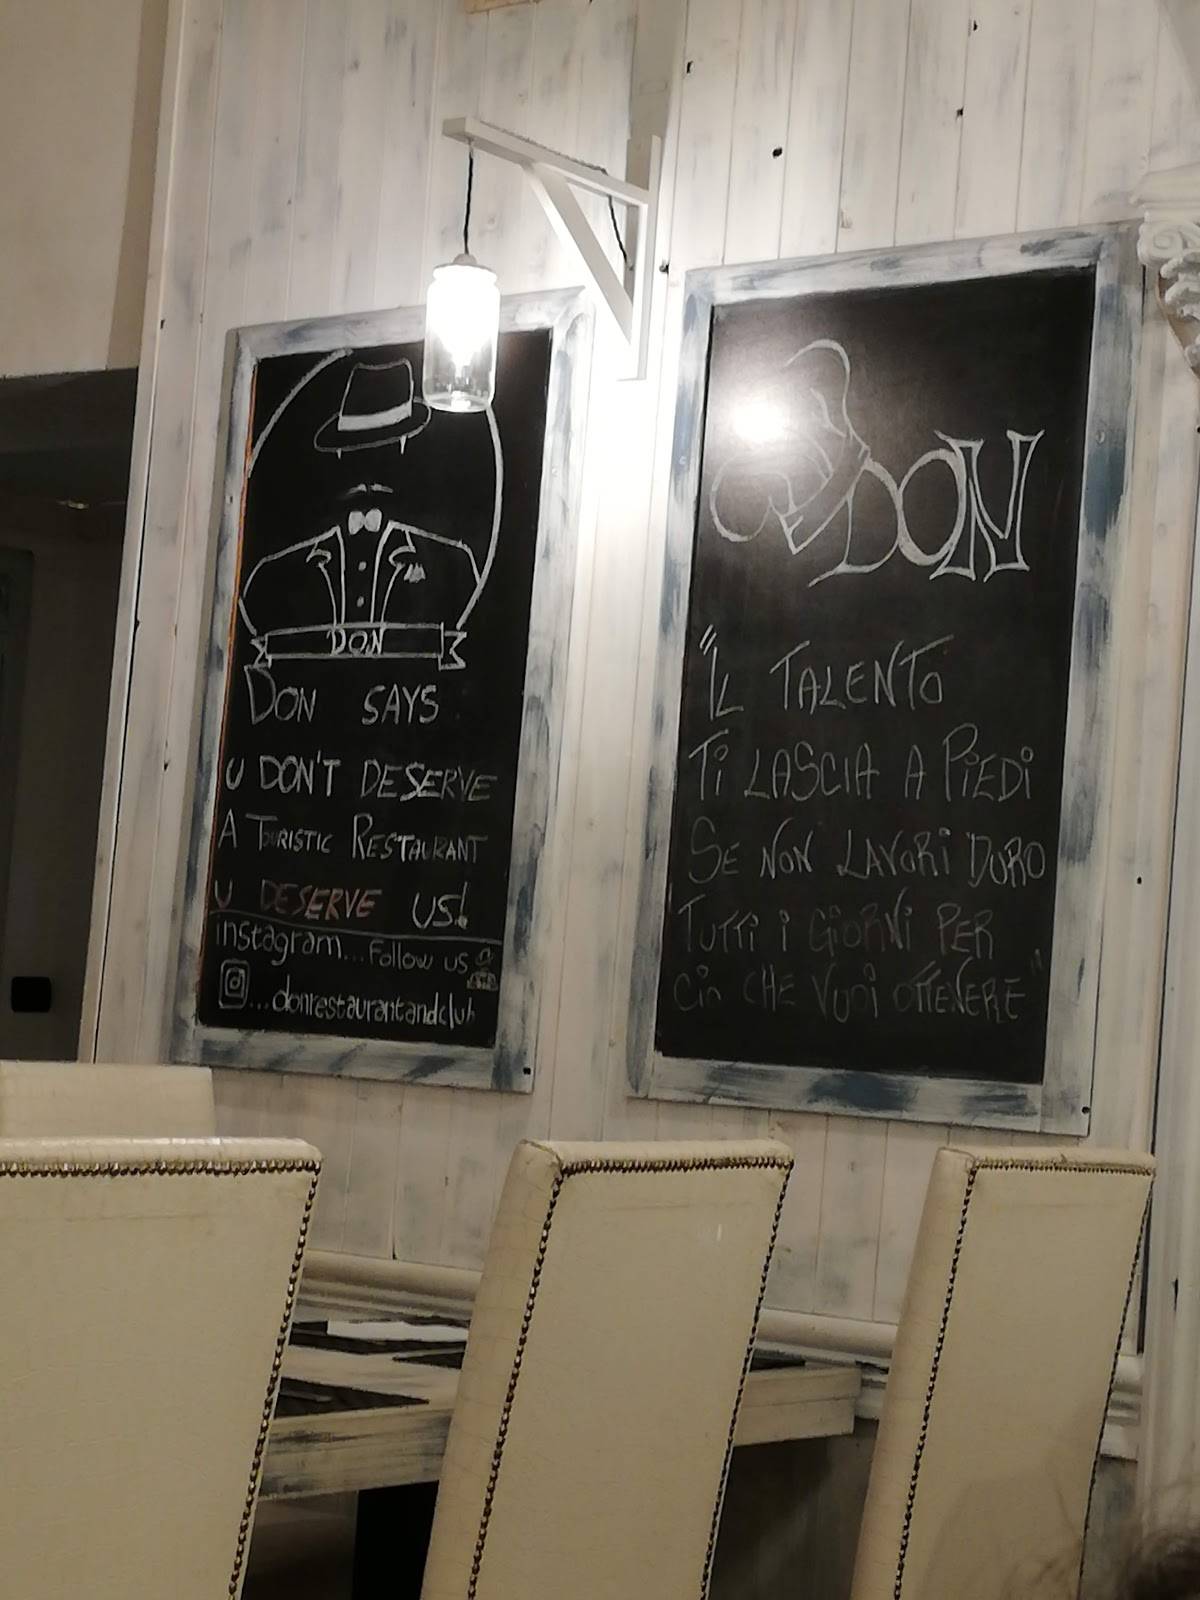 DON
DON SAYS
U DON'T DESERVE
A TOURISTIC RESTAURANT
U DESERVE US!
instagram... Follow us
...donrestaurantandclub
DON
"IL TALENTO
Ti LASCIA A PiEDi
SE NON LAVORi DURO
TUTTi i GiORNi PER
Ciò CHE VUOi OTTENERE"